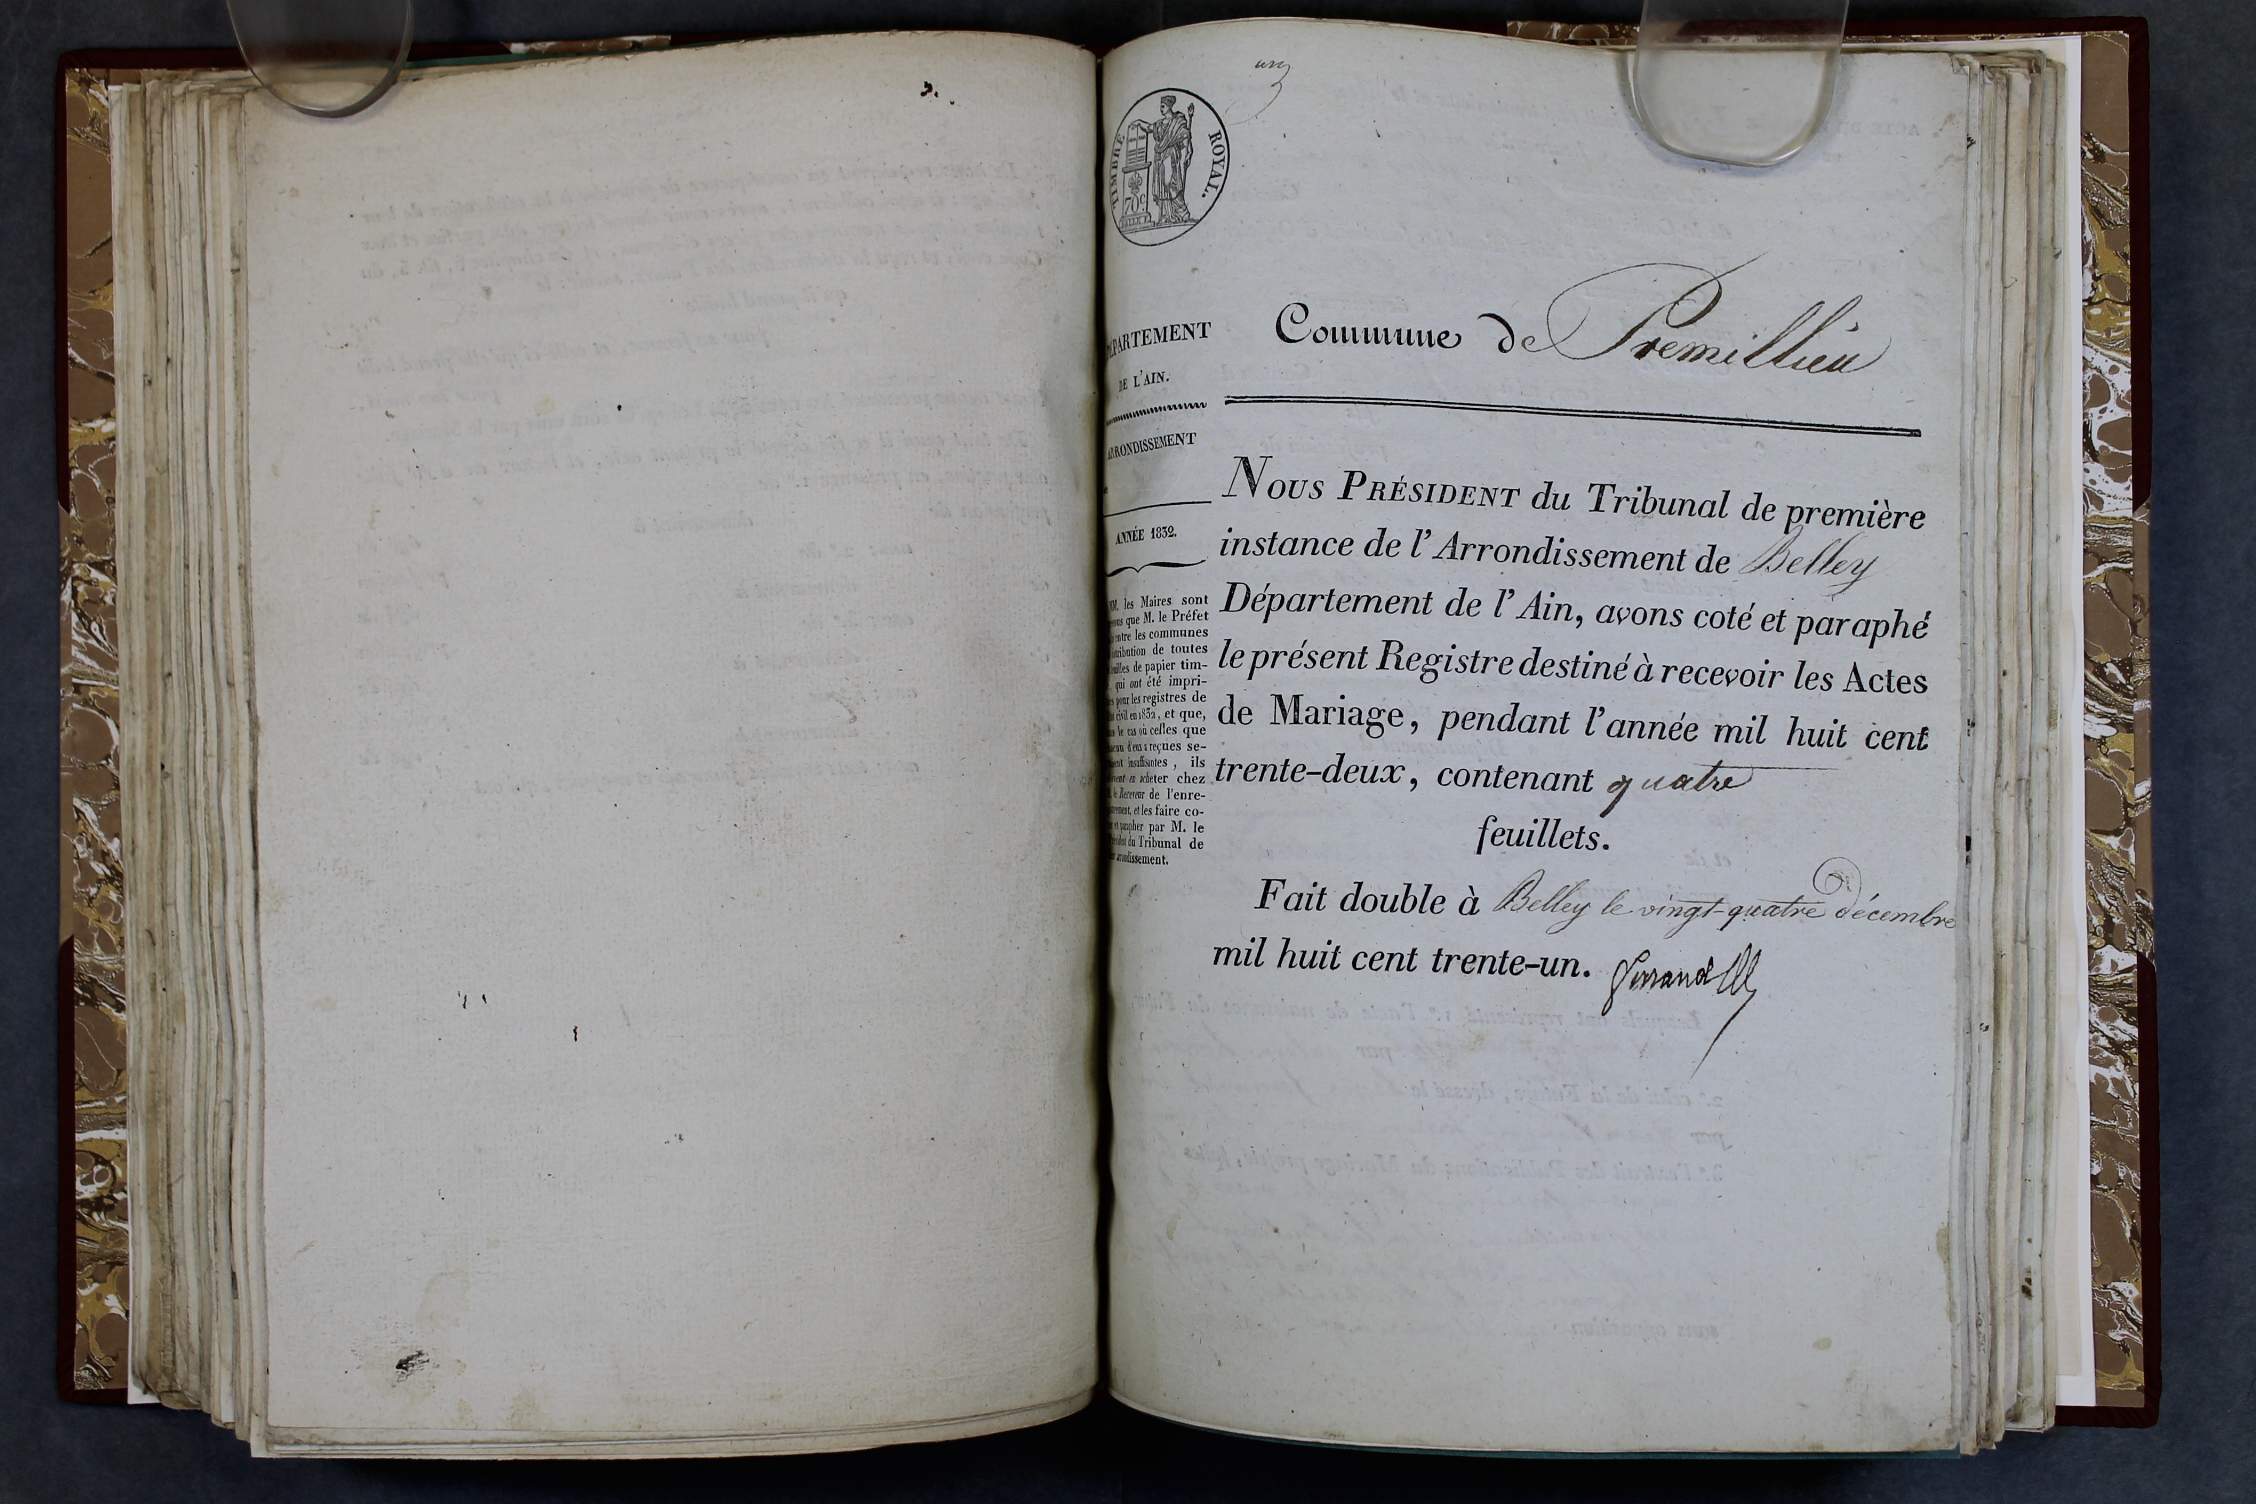 un
TIMBRE ROYAL.
70c
DÉPARTEMENT
DE L'AIN.
ARRONDISSEMENT
ANNÉE 1832.
MM. les Maires sont
que M. le Préfet
entre les communes
distribution de toutes
feuilles de papier tim-
qui ont été impri-
pour les registres de
civil en 1832, et que,
le cas où celles que
reçues se-
insuffisantes, ils
en acheter chez
le Receveur de l'enre-
et les faire co-
et parapher par M. le
Président du Tribunal de
arrondissement.
Commune de Premillieu
NOUS PRÉSIDENT du Tribunal de première
instance de l'Arrondissement de Belley
Département de l'Ain, avons coté et paraphé
le présent Registre destiné à recevoir les Actes
de Mariage, pendant l'année mil huit cent
trente-deux, contenant quatre
feuillets.
Fait double à Belley le vingt-quatre décembre
mil huit cent trente-un.